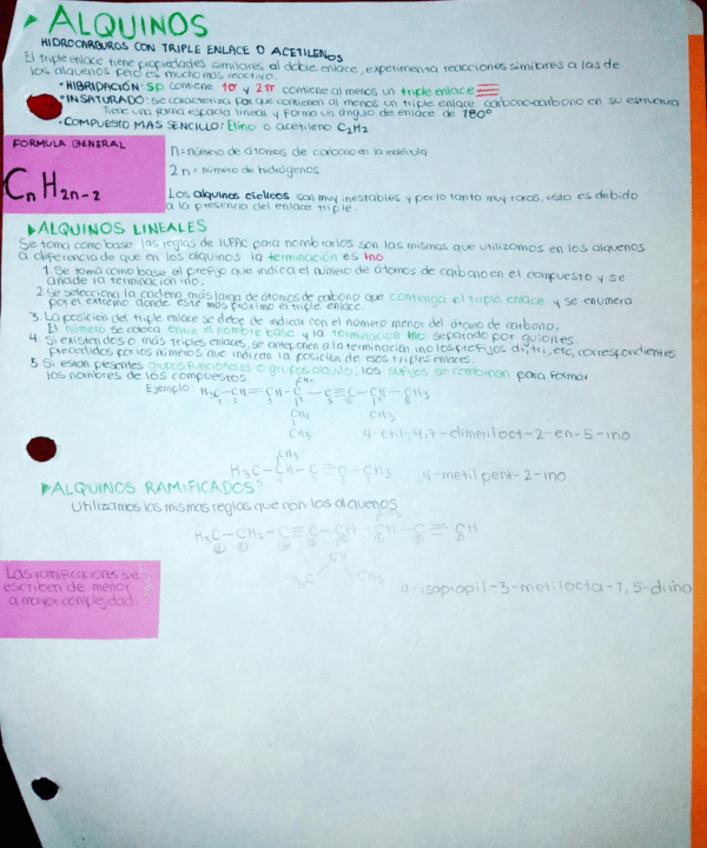 ▸ ALQUINOS
HIDROCARBUROS CON TRIPLE ENLACE O ACETILENOS
El triple enlace tiene propiedades similares al doble enlace, experimenta reacciones similares a las de
los alquenos pero es mucho mas reactivo.
• HIBRIDACIÓN: Sp contiene 1σ y 2π contiene al menos un triple enlace ≡
• INSATURADO: Se caracteriza por que contienen al menos un triple enlace carbono-carbono en su estructura
Tiene una forma espacia lineal y forma un ángulo de enlace de 180°
• COMPUESTO MAS SENCILLO: Etino o acetileno C2H2
FORMULA GENERAL
CnH2n-2
n= número de átomos de carbono en la molécula
2n = número de hidrógenos
Los alquinos cíclicos son muy inestables y por lo tanto muy raros, esto es debido
a la presencia del enlace triple.
▸ ALQUINOS LINEALES
Se toma como base las reglas de IUPAC para nombrarlos son las mismas que utilizamos en los alquenos
a diferencia de que en los alquinos la terminación es ino
1. Se toma como base el prefijo que indica el número de átomos de carbono en el compuesto y se
añade la terminación ino.
2. Se selecciona la cadena más larga de átomos de carbono que contenga el triple enlace y se enumera
por el extremo donde este más próximo el triple enlace.
3. La posición del triple enlace se debe de indicar con el número menor del átomo de carbono.
El número se coloca entre el nombre base y la terminación ino separado por guiones.
4. Si existen dos o más triples enlaces, se anteponen a la terminación ino los prefijos di, tri, etc, correspondientes
precedidos por los números que indican la posición de esos triples enlaces.
5. Si están pesentes grupos funcionales o grupos alquilo, los sufijos se combinan para formar
los nombres de los compuestos.
CH3
Ejemplo: H3C-CH=CH-C-C≡C-CH-CH3
CH2 CH3
CH3
4-etil-4,7-dimetiloct-2-en-5-ino
CH3
H3C-CH-C≡C-CH3
4-metil pent-2-ino
▸ ALQUINOS RAMIFICADOS
Utilizamos las mismas reglas que con los alquenos
CH3
H3C-CH2-C≡C-CH-CH-C≡CH
CH
H3C CH3
4-isopropil-3-metilocta-1,5-diino
Las ramificaciones se
escriben de menor
a mayor complejidad